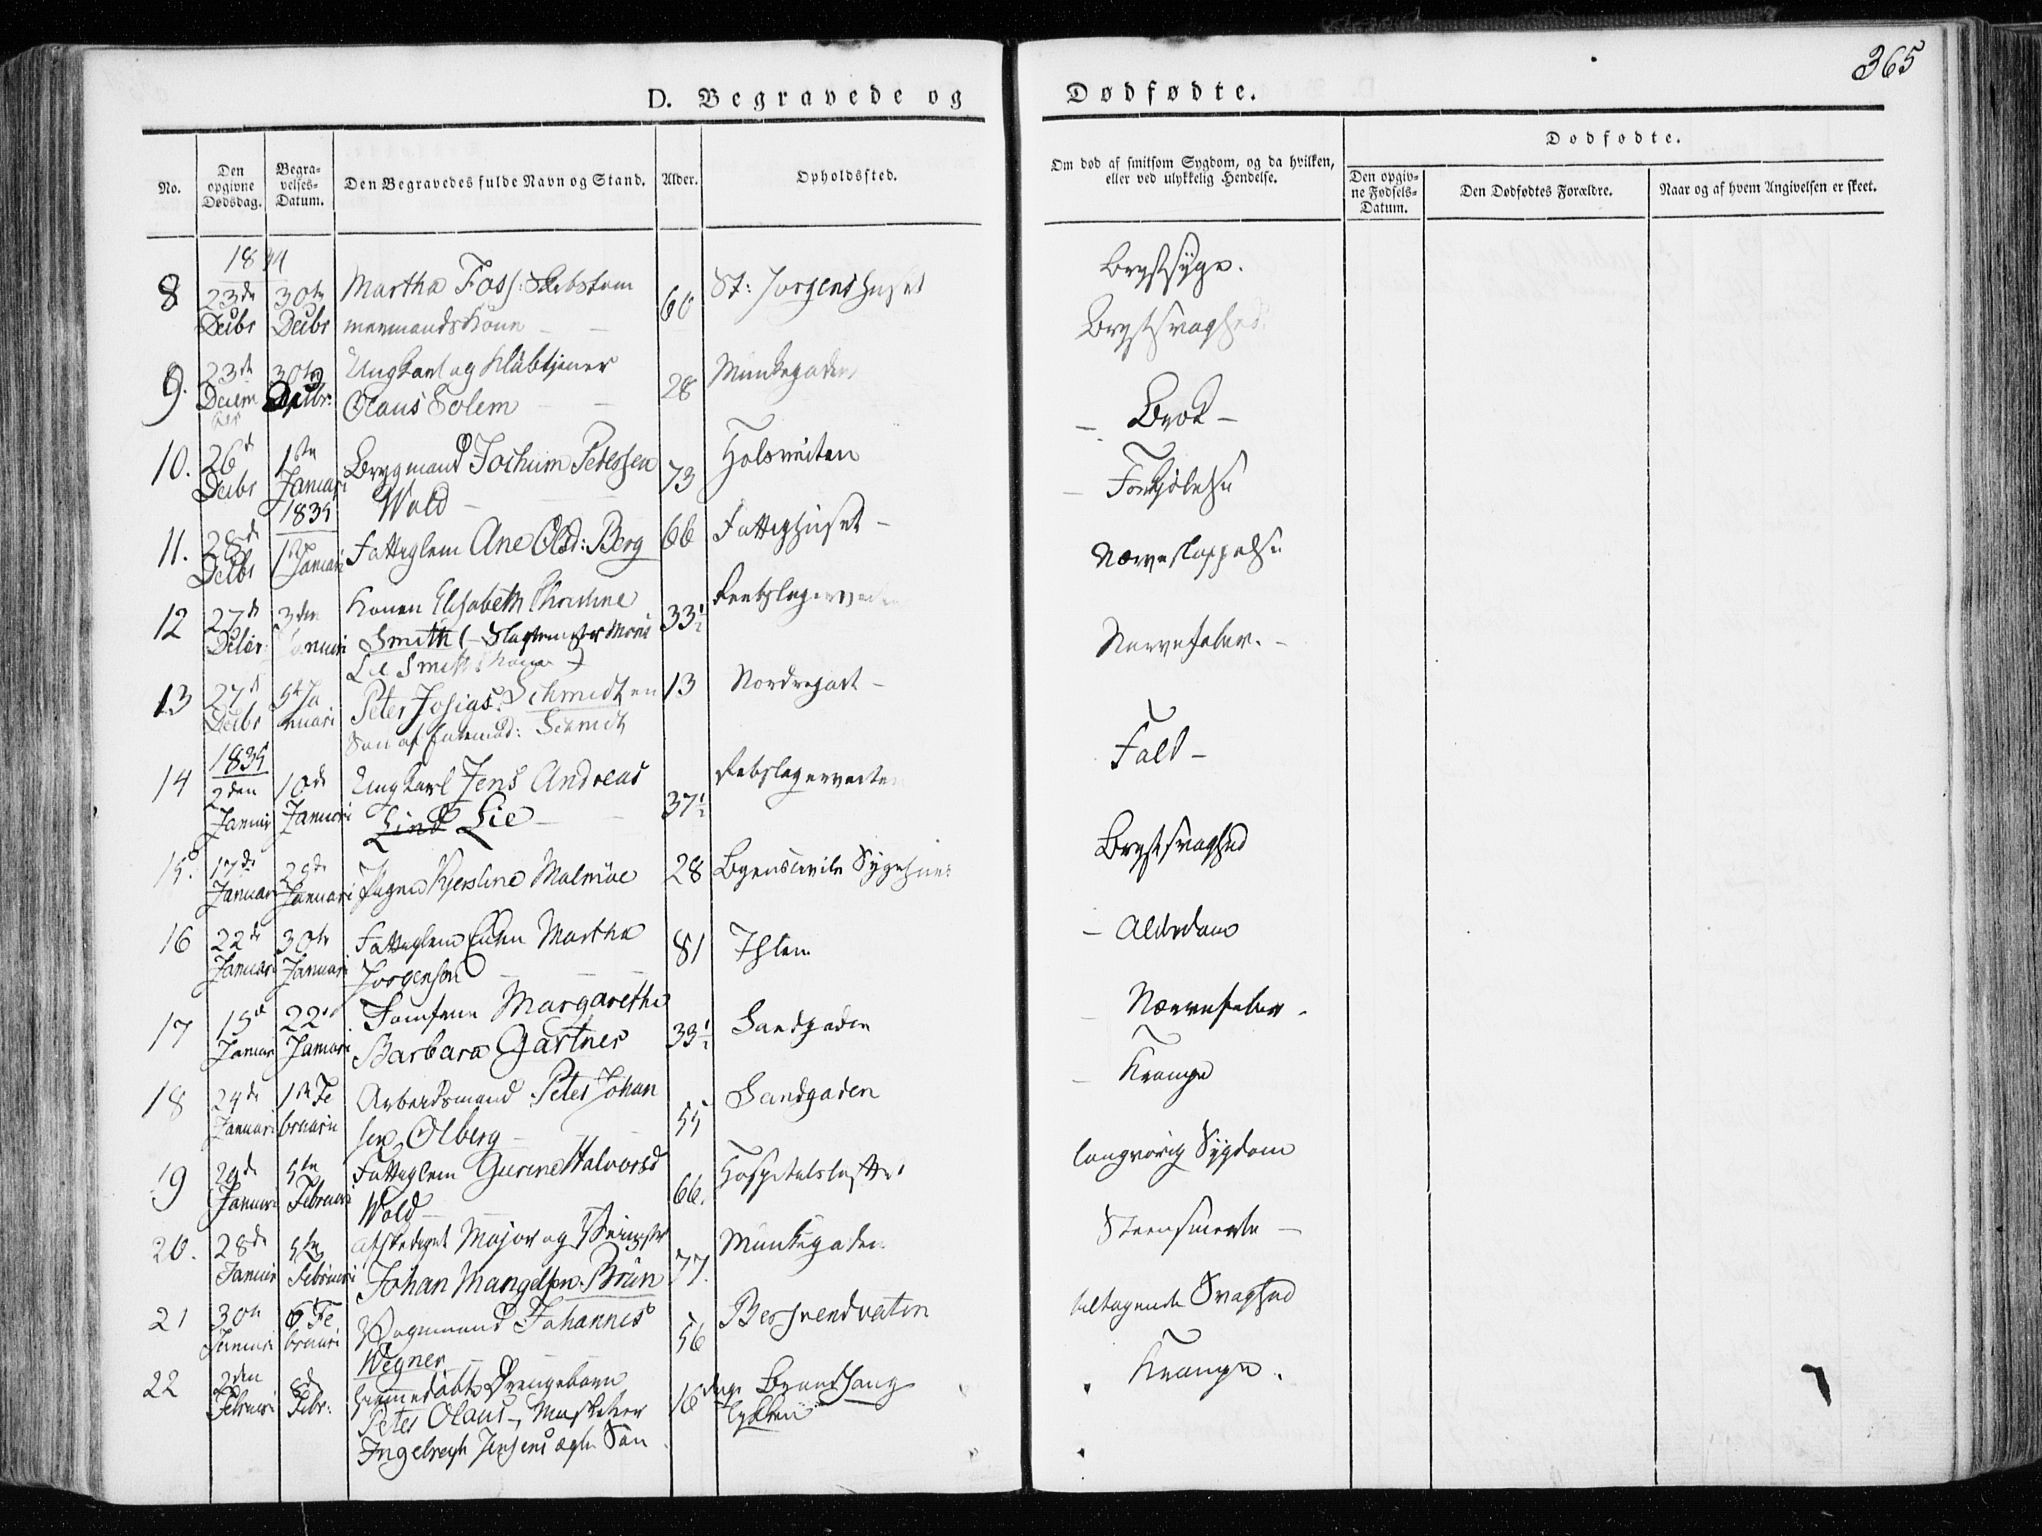 365
D. Begravede og Dødfødte.
No.
Den opgivne Dødsdag.
Begravelses-Datum.
Den Begravedes fulde Navn og Stand.
Alder.
Opholdssted.
Om død af smitsom Sygdom, og da hvilken, eller ved ulykkelig Hendelse.
Dødfødte.
Den opgivne Fødsels-Datum.
Den Dødfødtes Forældre.
Naar og af hvem Angivelsen er skeet.
1834
8 23de Decbr 30te Decbr Martha Foss: Skibstømmermands Kone 60 St: Jørgenshuset Brystsyge.
Brystsvaghed
9. 23de Decem 30te Decbr. Ungkarl og Klübtjener
Olaus Solem 28 Munkegaden
Brok
10. 26de Decbr 1ste Januari Brygmand Jochum Petersen
Wold 73 Holsveiten
Forkjølelse
1835
11. 28de Decbr 1ste Januari Fattiglem Ane Olsd: Berg 66 Fattighuset
Nerveslappelse
12 27de 3die Januari Konen Elisabeth Christine
Smith (Slagtermester
Lie Smiths Kone) 33½ Reebslagerveiten
Nervefeber.
13 27de Decbr 5te Januari Peter Schmidt en
Søn af Schmidt 13 Nordregade
Fald
1835
14 2den Januar 10de Januari Ungkarl Jens Andreas
Lind Lie 37½ Rebslagerveiten
Brystsvaghed
15. 17de Januari 29de Januari Pigen Kjerstine Malmöe 28 Byens civile Sygehuus
16 22de Januari 30te Januari Fattiglem Enken Martha
Jørgensen 81 Ihlen
Alderdom
17 15de Januar 22de Januari Jomfrue Margaretha
Barbara Gartner 33½ Sandgaden
Nervefeber.
18 24de Januari 1ste Februari Arbeidsmand Peter Johan
sen Olberg 55 Sandgaden
Krampe
19 29de Januari 5te Februari Fattiglem Gurine Halvorsd
Wold 66. Hospitalsløkken
langvarig Sygdom
20. 28de Januar 5te Februari afskediget Major og
Johan Mangelsen Brün 77. Munkegaden
Steensmerte
21 30te Januari 6 Februari Vognmand Johannes
Wegner 56 Bersvendveiten
tiltagende Svaghed
22 2den Februari 8de Febr: hjemmedöbte Drengebarn
Peter Olaus, Musketeer
Ingebregt Jensens ægte Søn 16 dage Brandhaug
lykken
Krampe.